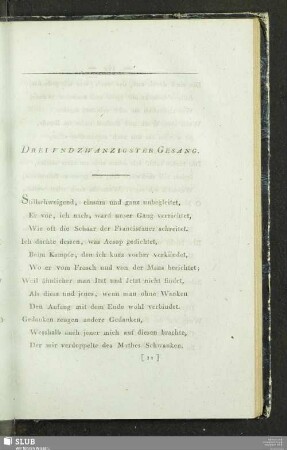 DREIUNDZWANZIGSTER GESANG.
Stillschweigend, einsam und ganz unbegleitet,
Er vor, ich nach, ward unser Gang verrichtet,
Wie oft die Schaar der Franciskaner schreitet.
Ich dachte dessen, was Aesop gedichtet,
Beim Kampfe, den ich kurz vorher verkündet,
Wo er vom Frosch und von der Maus berichtet;
Weil ähnlicher man Itzt und Jetzt nicht findet,
Als diess und jenes, wenn man ohne Wanken
Den Anfang mit dem Ende wohl verbindet.
Gedanken zeugen andere Gedanken,
Weshalb auch jener mich auf diesen brachte,
Der mir verdoppelte des Muthes Schwanken.
[11]
SLUB